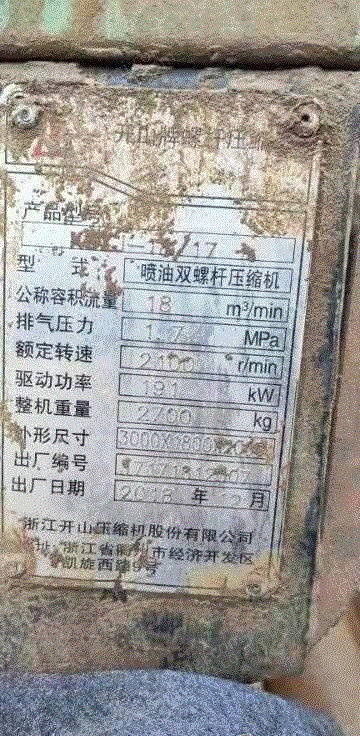 开山牌螺杆压缩
产品型号
-18/17
型 式 喷油双螺杆压缩机
公称容积流量 18 m³/min
排气压力 1.7 MPa
额定转速 2100 r/min
驱动功率 191 kW
整机重量 2700 kg
外形尺寸 3000X1800X20
出厂编号
出厂日期 2018 年 12 月
浙江开山压缩机股份有限公司
址:浙江省衢州市经济开发区
凯旋西路9号